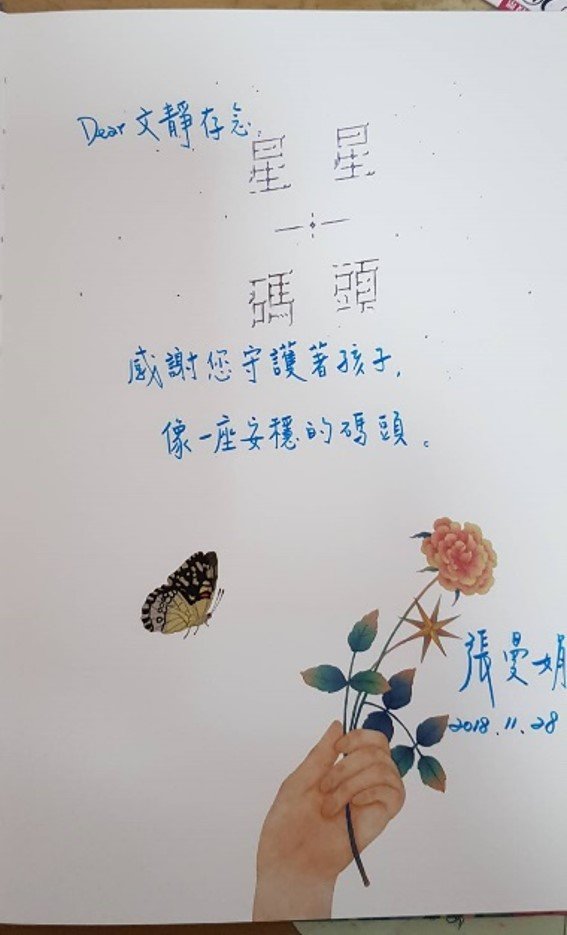 Dear 文靜存念.
星星
碼頭
感謝您守護著孩子,
像一座安穩的碼頭。
張曼娟
2018.11.28